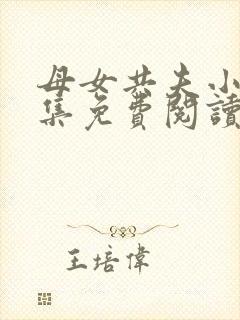 母女共夫小
集免費閱讀
王培偉